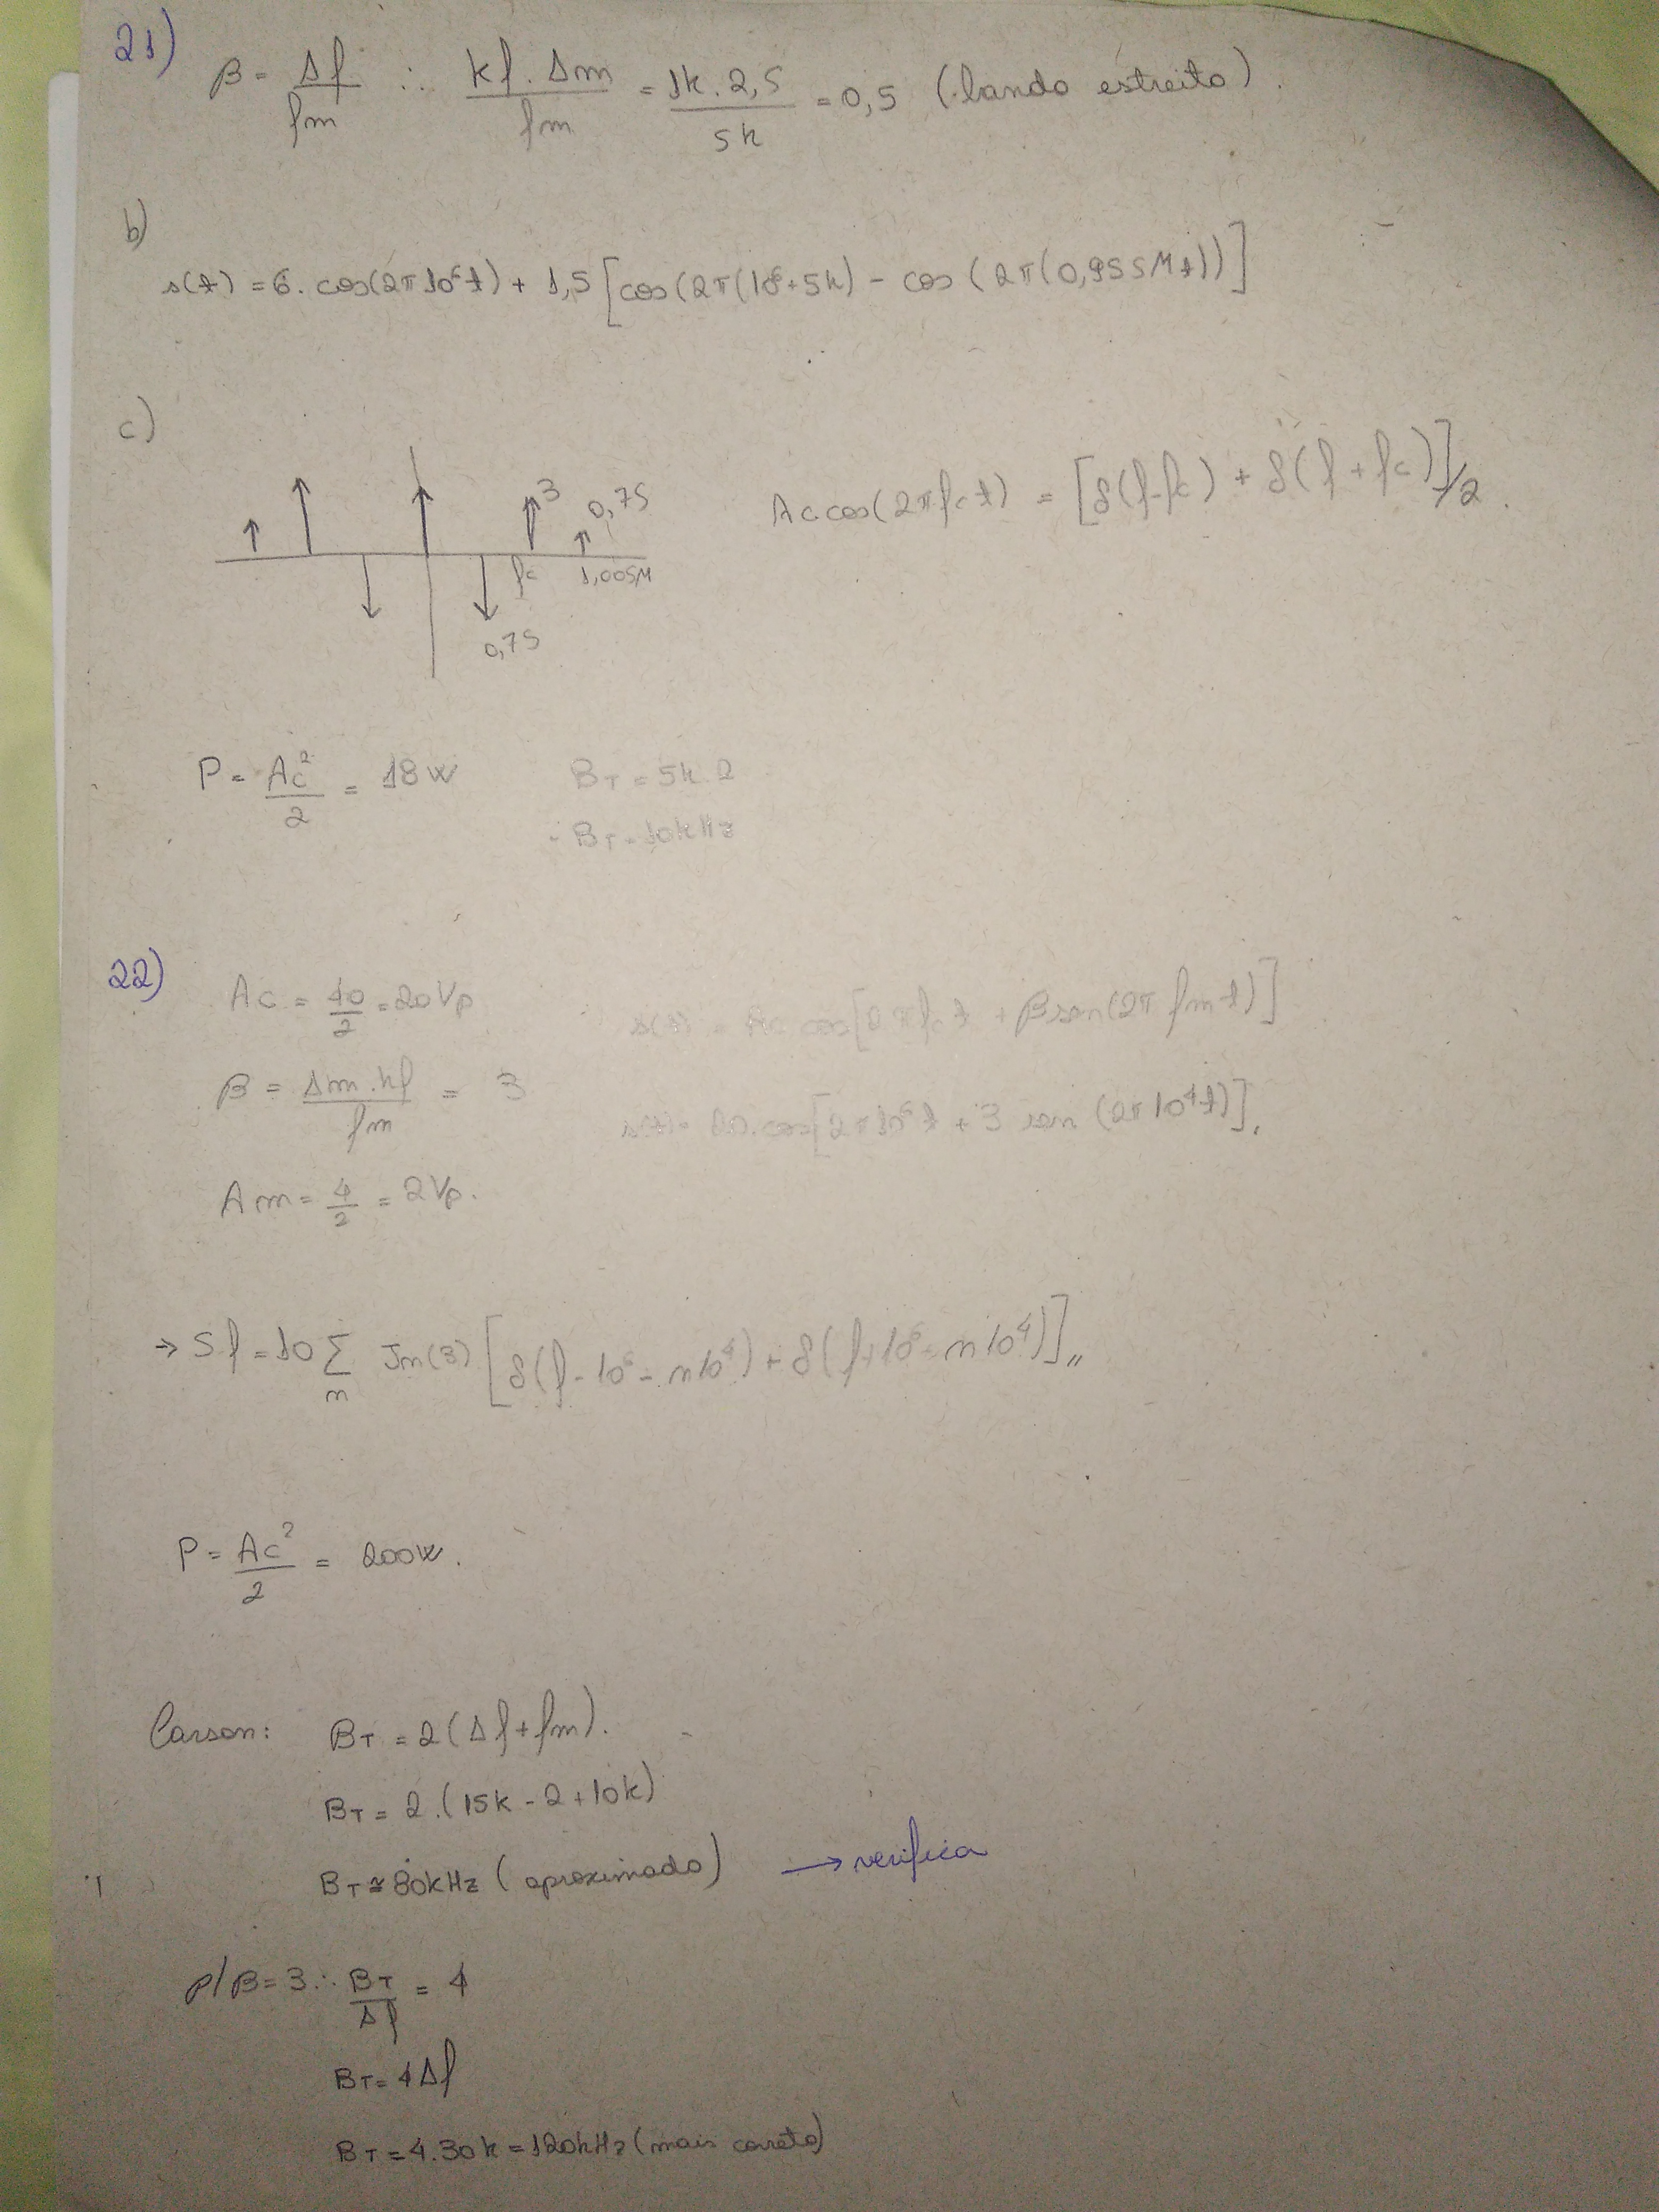 21)
β = Δf/fm ∴ kf.Δm/fm = 1k.2,5/5k = 0,5 (banda estreita).
b)
s(t) = 6.cos(2π10⁶t) + 1,5[cos(2π(10⁶+5k) - cos(2π(0,955Mt))]
c)
3 0,75
Ac cos(2πfct) = [δ(f-fc) + δ(f+fc)]/2.
fc 1,005M
0,75
P = Ac²/2 = 18W BT = 5k.2
BT = 10kHz
22)
Ac = 40/2 = 20Vp s(t) = Ac cos[2πfct + βsen(2πfmt)]
β = Δm.kf/fm = 3 s(t) = 20.cos[2π10⁶t + 3 sen(2π10⁴t)],
Am = 4/2 = 2Vp.
→ Sf = 10 Σn Jn(3) [δ(f-10⁶-n10⁴) + δ(f+10⁶-n10⁴)],,
P = Ac²/2 = 200W.
Carson: BT = 2(Δf+fm).
BT = 2.(15k-2+10k)
BT ≅ 80kHz (aproximado) → verifica
p/β=3 ∴ BT/Δf = 4
BT = 4Δf
BT = 4.30k = 120kHz (mais correto)